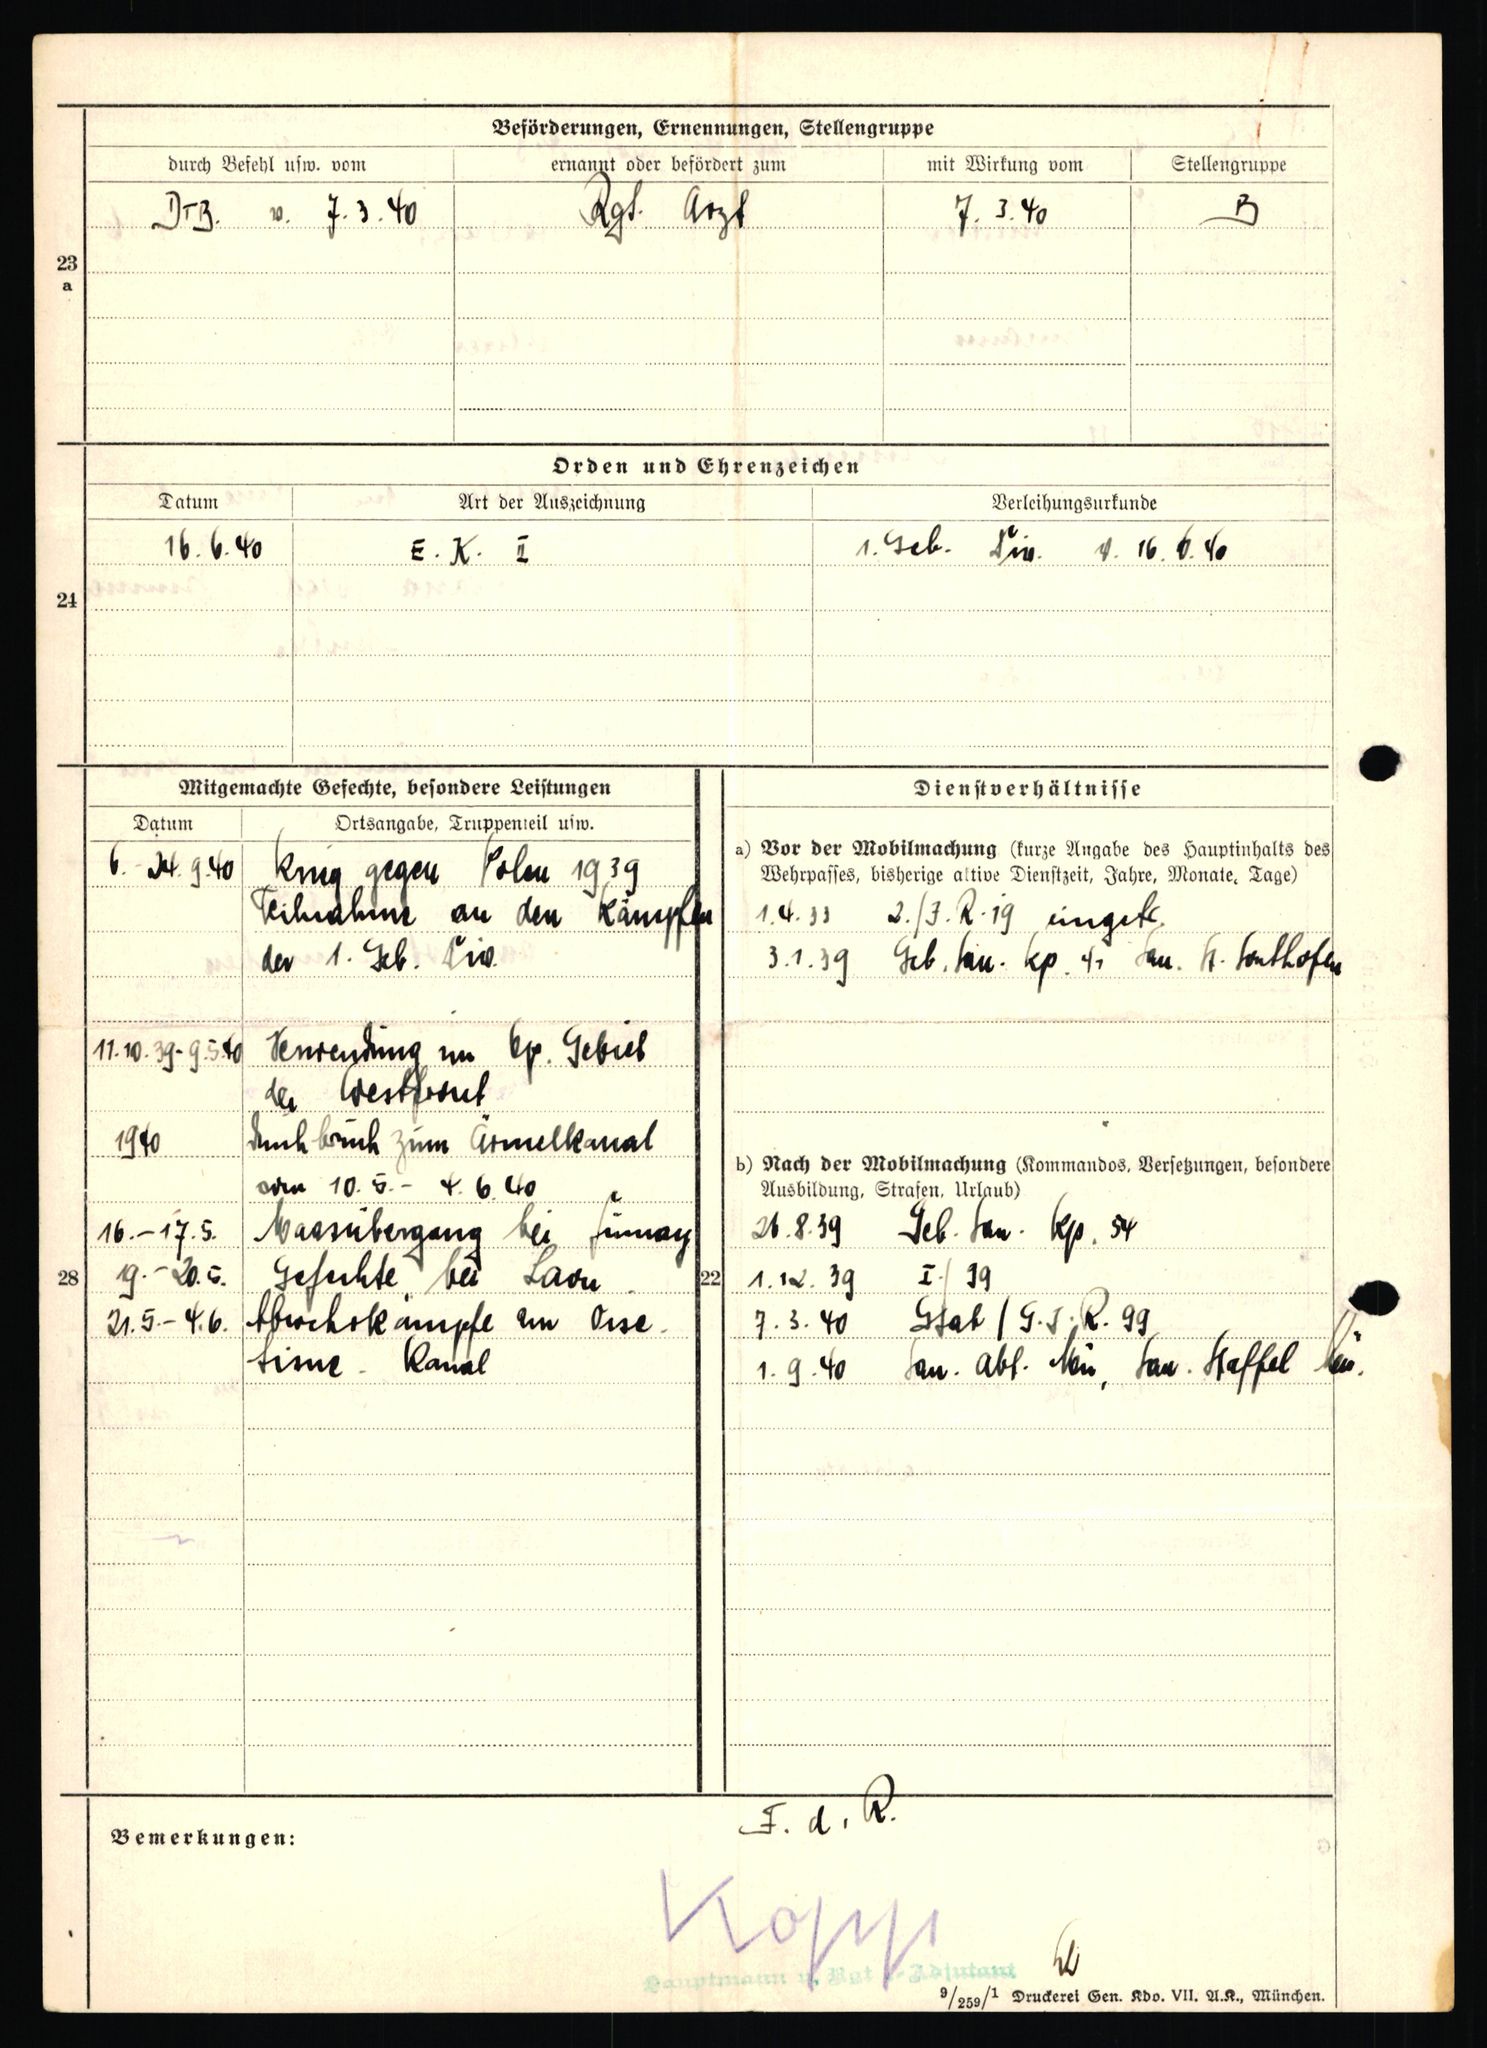 Beförderungen, Ernennungen, Stellengruppe
durch Befehl usw. vom
ernannt oder befördert zum
mit Wirkung vom
Stellengruppe
23
a
v. 7.3.40
Rgt. Arzt
7.3.40
B
Orden und Ehrenzeichen
Datum
Art der Auszeichnung
Verleihungsurkunde
24
16.6.40
E.K. II
1. Geb. Div. v. 16.6.40
Mitgemachte Gefechte, besondere Leistungen
Datum
Ortsangabe, Truppenteil usw.
28
6.-24.9.40 Krieg gegen Polen 1939
Teilnahme an den Kämpfen
der 1. Geb. Div.
11.10.39-9.5.40 Verwendung im Op. Gebiet
der Westfront
1940 Durchbruch zum Ärmelkanal
vom 10.5.- 4.6.40
16.-17.5. Maasübergang bei Fumay
19.-20.5. Gefechte bei Laon
21.5.-4.6. Abwehrkämpfe am Oise-
Aisne-Kanal
Dienstverhältnisse
22
a) Vor der Mobilmachung (kurze Angabe des Hauptinhalts des
Wehrpasses, bisherige aktive Dienstzeit, Jahre, Monate, Tage)
1.4.33 2./J.R.19 eingetr.
3.1.39 Geb. San. Kp. San. St. Sonthofen
b) Nach der Mobilmachung (Kommandos, Versetzungen, besondere
Ausbildung, Strafen, Urlaub)
26.8.39 Geb. San. Kp. 54
1.12.39 I./99
7.3.40 Stab/G.J.R. 99
1.9.40 San. Abt. Mü, San. Staffel Mü.
Bemerkungen:
F.d.R.
Kopp
Hauptmann u. Rgt.-Adjutant
9/259/1 Druckerei Gen. Kdo. VII. A.K., München.